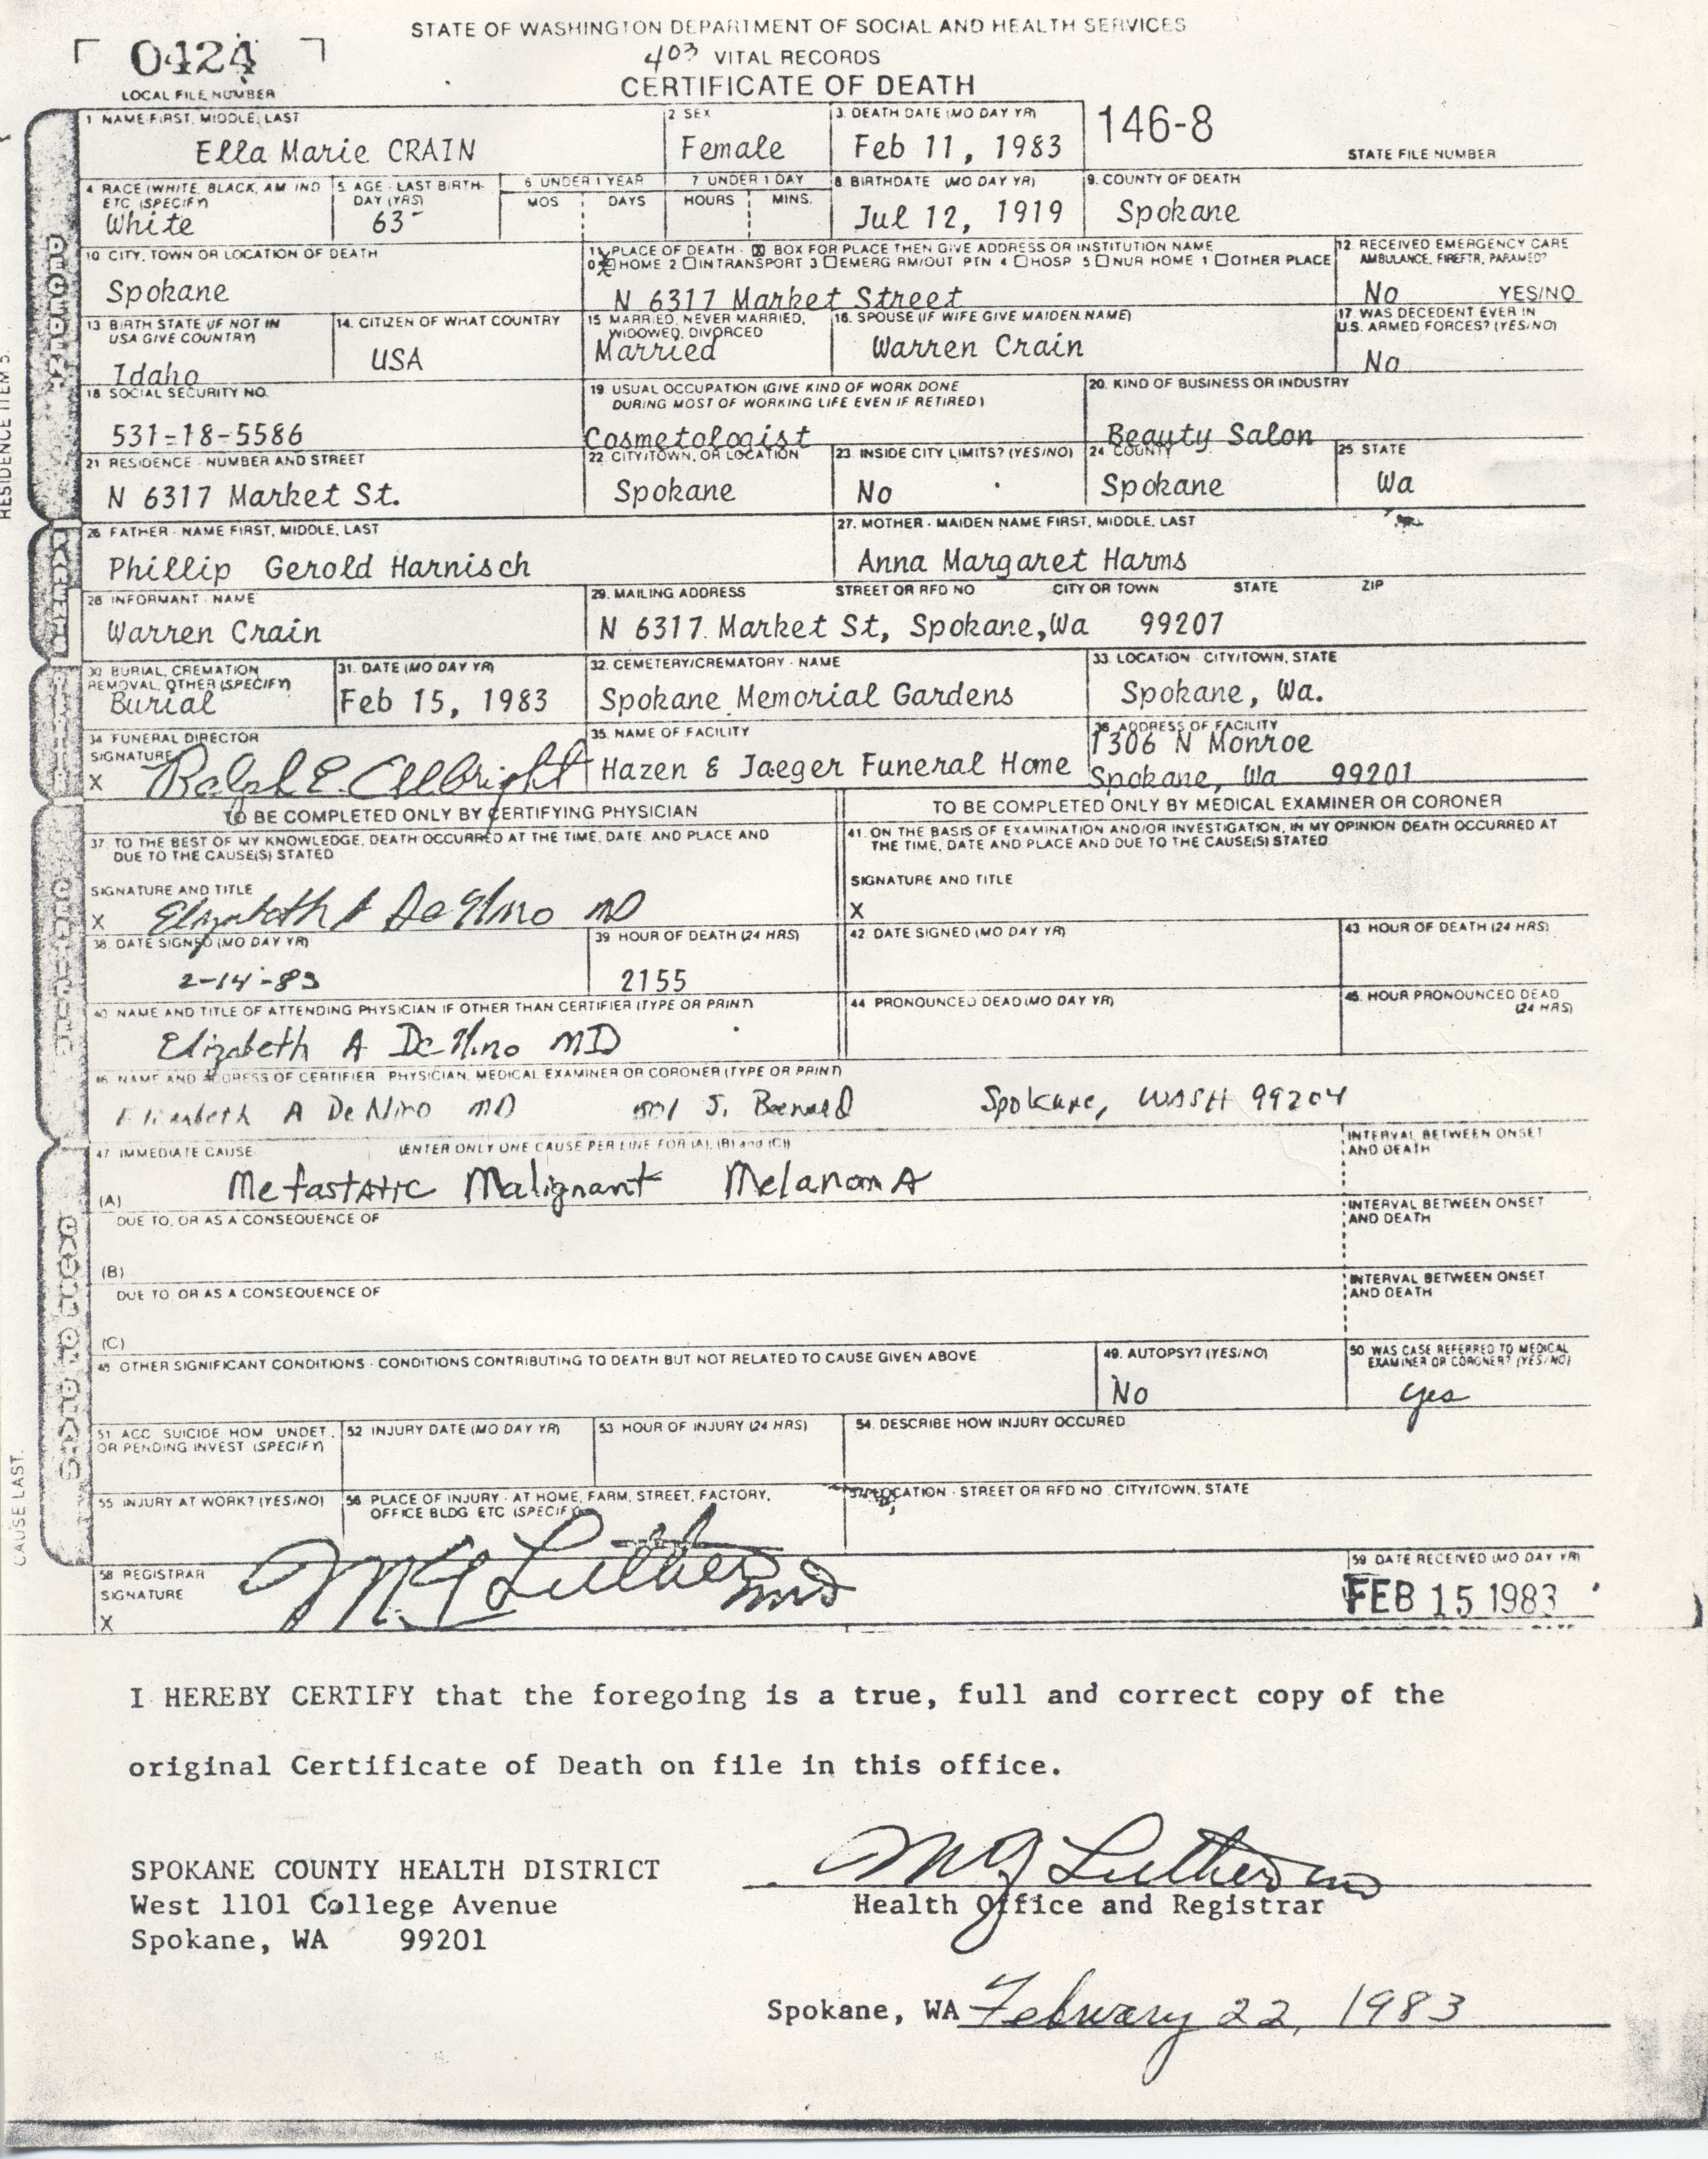 STATE OF WASHINGTON DEPARTMENT OF SOCIAL AND HEALTH SERVICES
0424
403 VITAL RECORDS
LOCAL FILE NUMBER
CERTIFICATE OF DEATH
146-8
STATE FILE NUMBER
1 NAME FIRST, MIDDLE, LAST
Ella Marie CRAIN
2 SEX
Female
3. DEATH DATE (MO DAY YR)
Feb 11, 1983
4 RACE (WHITE, BLACK, AM IND ETC (SPECIFY)
White
5 AGE - LAST BIRTH-DAY (YRS)
63
6 UNDER 1 YEAR
MOS DAYS
7 UNDER 1 DAY
HOURS MINS.
8. BIRTHDATE (MO DAY YR)
Jul 12, 1919
9. COUNTY OF DEATH
Spokane
10 CITY, TOWN OR LOCATION OF DEATH
Spokane
11 PLACE OF DEATH - ☒ BOX FOR PLACE THEN GIVE ADDRESS OR INSTITUTION NAME
0 ☒ HOME 2 ☐ IN TRANSPORT 3 ☐ EMERG RM/OUT PTN 4 ☐ HOSP 5 ☐ NUR HOME 1 ☐ OTHER PLACE
N 6317 Market Street
12. RECEIVED EMERGENCY CARE
AMBULANCE, FIREFTR, PARAMED?
No YES/NO
13 BIRTH STATE (IF NOT IN
USA GIVE COUNTRY)
Idaho
14. CITIZEN OF WHAT COUNTRY
USA
15 MARRIED, NEVER MARRIED,
WIDOWED, DIVORCED
Married
16. SPOUSE (IF WIFE GIVE MAIDEN NAME)
Warren Crain
17. WAS DECEDENT EVER IN
U.S. ARMED FORCES? (YES/NO)
No
18 SOCIAL SECURITY NO.
531-18-5586
19 USUAL OCCUPATION (GIVE KIND OF WORK DONE
DURING MOST OF WORKING LIFE EVEN IF RETIRED)
Cosmetologist
20. KIND OF BUSINESS OR INDUSTRY
Beauty Salon
21 RESIDENCE - NUMBER AND STREET
N 6317 Market St.
22 CITY/TOWN, OR LOCATION
Spokane
23. INSIDE CITY LIMITS? (YES/NO)
No
24. COUNTY
Spokane
25. STATE
Wa
26 FATHER - NAME FIRST, MIDDLE, LAST
Phillip Gerold Harnisch
27. MOTHER - MAIDEN NAME FIRST, MIDDLE, LAST
Anna Margaret Harms
28 INFORMANT - NAME
Warren Crain
29. MAILING ADDRESS STREET OR RFD NO CITY OR TOWN STATE ZIP
N 6317 Market St, Spokane,Wa 99207
30 BURIAL, CREMATION
REMOVAL, OTHER (SPECIFY)
Burial
31. DATE (MO DAY YR)
Feb 15, 1983
32. CEMETERY/CREMATORY - NAME
Spokane Memorial Gardens
33. LOCATION - CITY/TOWN, STATE
Spokane, Wa.
34 FUNERAL DIRECTOR
SIGNATURE
X Ralph E. Allbright
35. NAME OF FACILITY
Hazen & Jaeger Funeral Home
36. ADDRESS OF FACILITY
1306 N Monroe
Spokane, Wa 99201
TO BE COMPLETED ONLY BY CERTIFYING PHYSICIAN
37. TO THE BEST OF MY KNOWLEDGE, DEATH OCCURRED AT THE TIME, DATE AND PLACE AND
DUE TO THE CAUSE(S) STATED
SIGNATURE AND TITLE
X Elizabeth A DeNino MD
38. DATE SIGNED (MO DAY YR)
2-14-83
39 HOUR OF DEATH (24 HRS)
2155
40 NAME AND TITLE OF ATTENDING PHYSICIAN IF OTHER THAN CERTIFIER (TYPE OR PRINT)
Elizabeth A DeNino MD
TO BE COMPLETED ONLY BY MEDICAL EXAMINER OR CORONER
41. ON THE BASIS OF EXAMINATION AND/OR INVESTIGATION, IN MY OPINION DEATH OCCURRED AT
THE TIME, DATE AND PLACE AND DUE TO THE CAUSE(S) STATED
SIGNATURE AND TITLE
X
42 DATE SIGNED (MO DAY YR)
43 HOUR OF DEATH (24 HRS)
44 PRONOUNCED DEAD (MO DAY YR)
45. HOUR PRONOUNCED DEAD
(24 HRS)
46 NAME AND ADDRESS OF CERTIFIER PHYSICIAN, MEDICAL EXAMINER OR CORONER (TYPE OR PRINT)
Elizabeth A DeNino MD S. Bernard Spokane, WASH 99204
47 IMMEDIATE CAUSE (ENTER ONLY ONE CAUSE PER LINE FOR (A), (B) and (C))
INTERVAL BETWEEN ONSET
AND DEATH
(A) Metastatic Malignant Melanoma
DUE TO, OR AS A CONSEQUENCE OF
INTERVAL BETWEEN ONSET
AND DEATH
(B)
DUE TO, OR AS A CONSEQUENCE OF
INTERVAL BETWEEN ONSET
AND DEATH
(C)
48 OTHER SIGNIFICANT CONDITIONS - CONDITIONS CONTRIBUTING TO DEATH BUT NOT RELATED TO CAUSE GIVEN ABOVE
49. AUTOPSY? (YES/NO)
No
50 WAS CASE REFERRED TO MEDICAL
EXAMINER OR CORONER? (YES/NO)
yes
51 ACC SUICIDE HOM UNDET.
OR PENDING INVEST (SPECIFY)
52 INJURY DATE (MO DAY YR)
53 HOUR OF INJURY (24 HRS)
54. DESCRIBE HOW INJURY OCCURED
55 INJURY AT WORK? (YES/NO)
56 PLACE OF INJURY - AT HOME, FARM, STREET, FACTORY,
OFFICE BLDG ETC (SPECIFY)
57 LOCATION - STREET OR RFD NO. CITY/TOWN, STATE
58 REGISTRAR
SIGNATURE
X M J Luther MD
59 DATE RECEIVED (MO DAY YR)
FEB 15 1983
RESIDENCE ITEM 5.
DECEDENT
PARENT
CERTIFIER
CAUSE OF DEATH
CAUSE LAST.
I HEREBY CERTIFY that the foregoing is a true, full and correct copy of the
original Certificate of Death on file in this office.
SPOKANE COUNTY HEALTH DISTRICT
West 1101 College Avenue
Spokane, WA 99201
M J Luther MD
Health Office and Registrar
Spokane, WA February 22, 1983